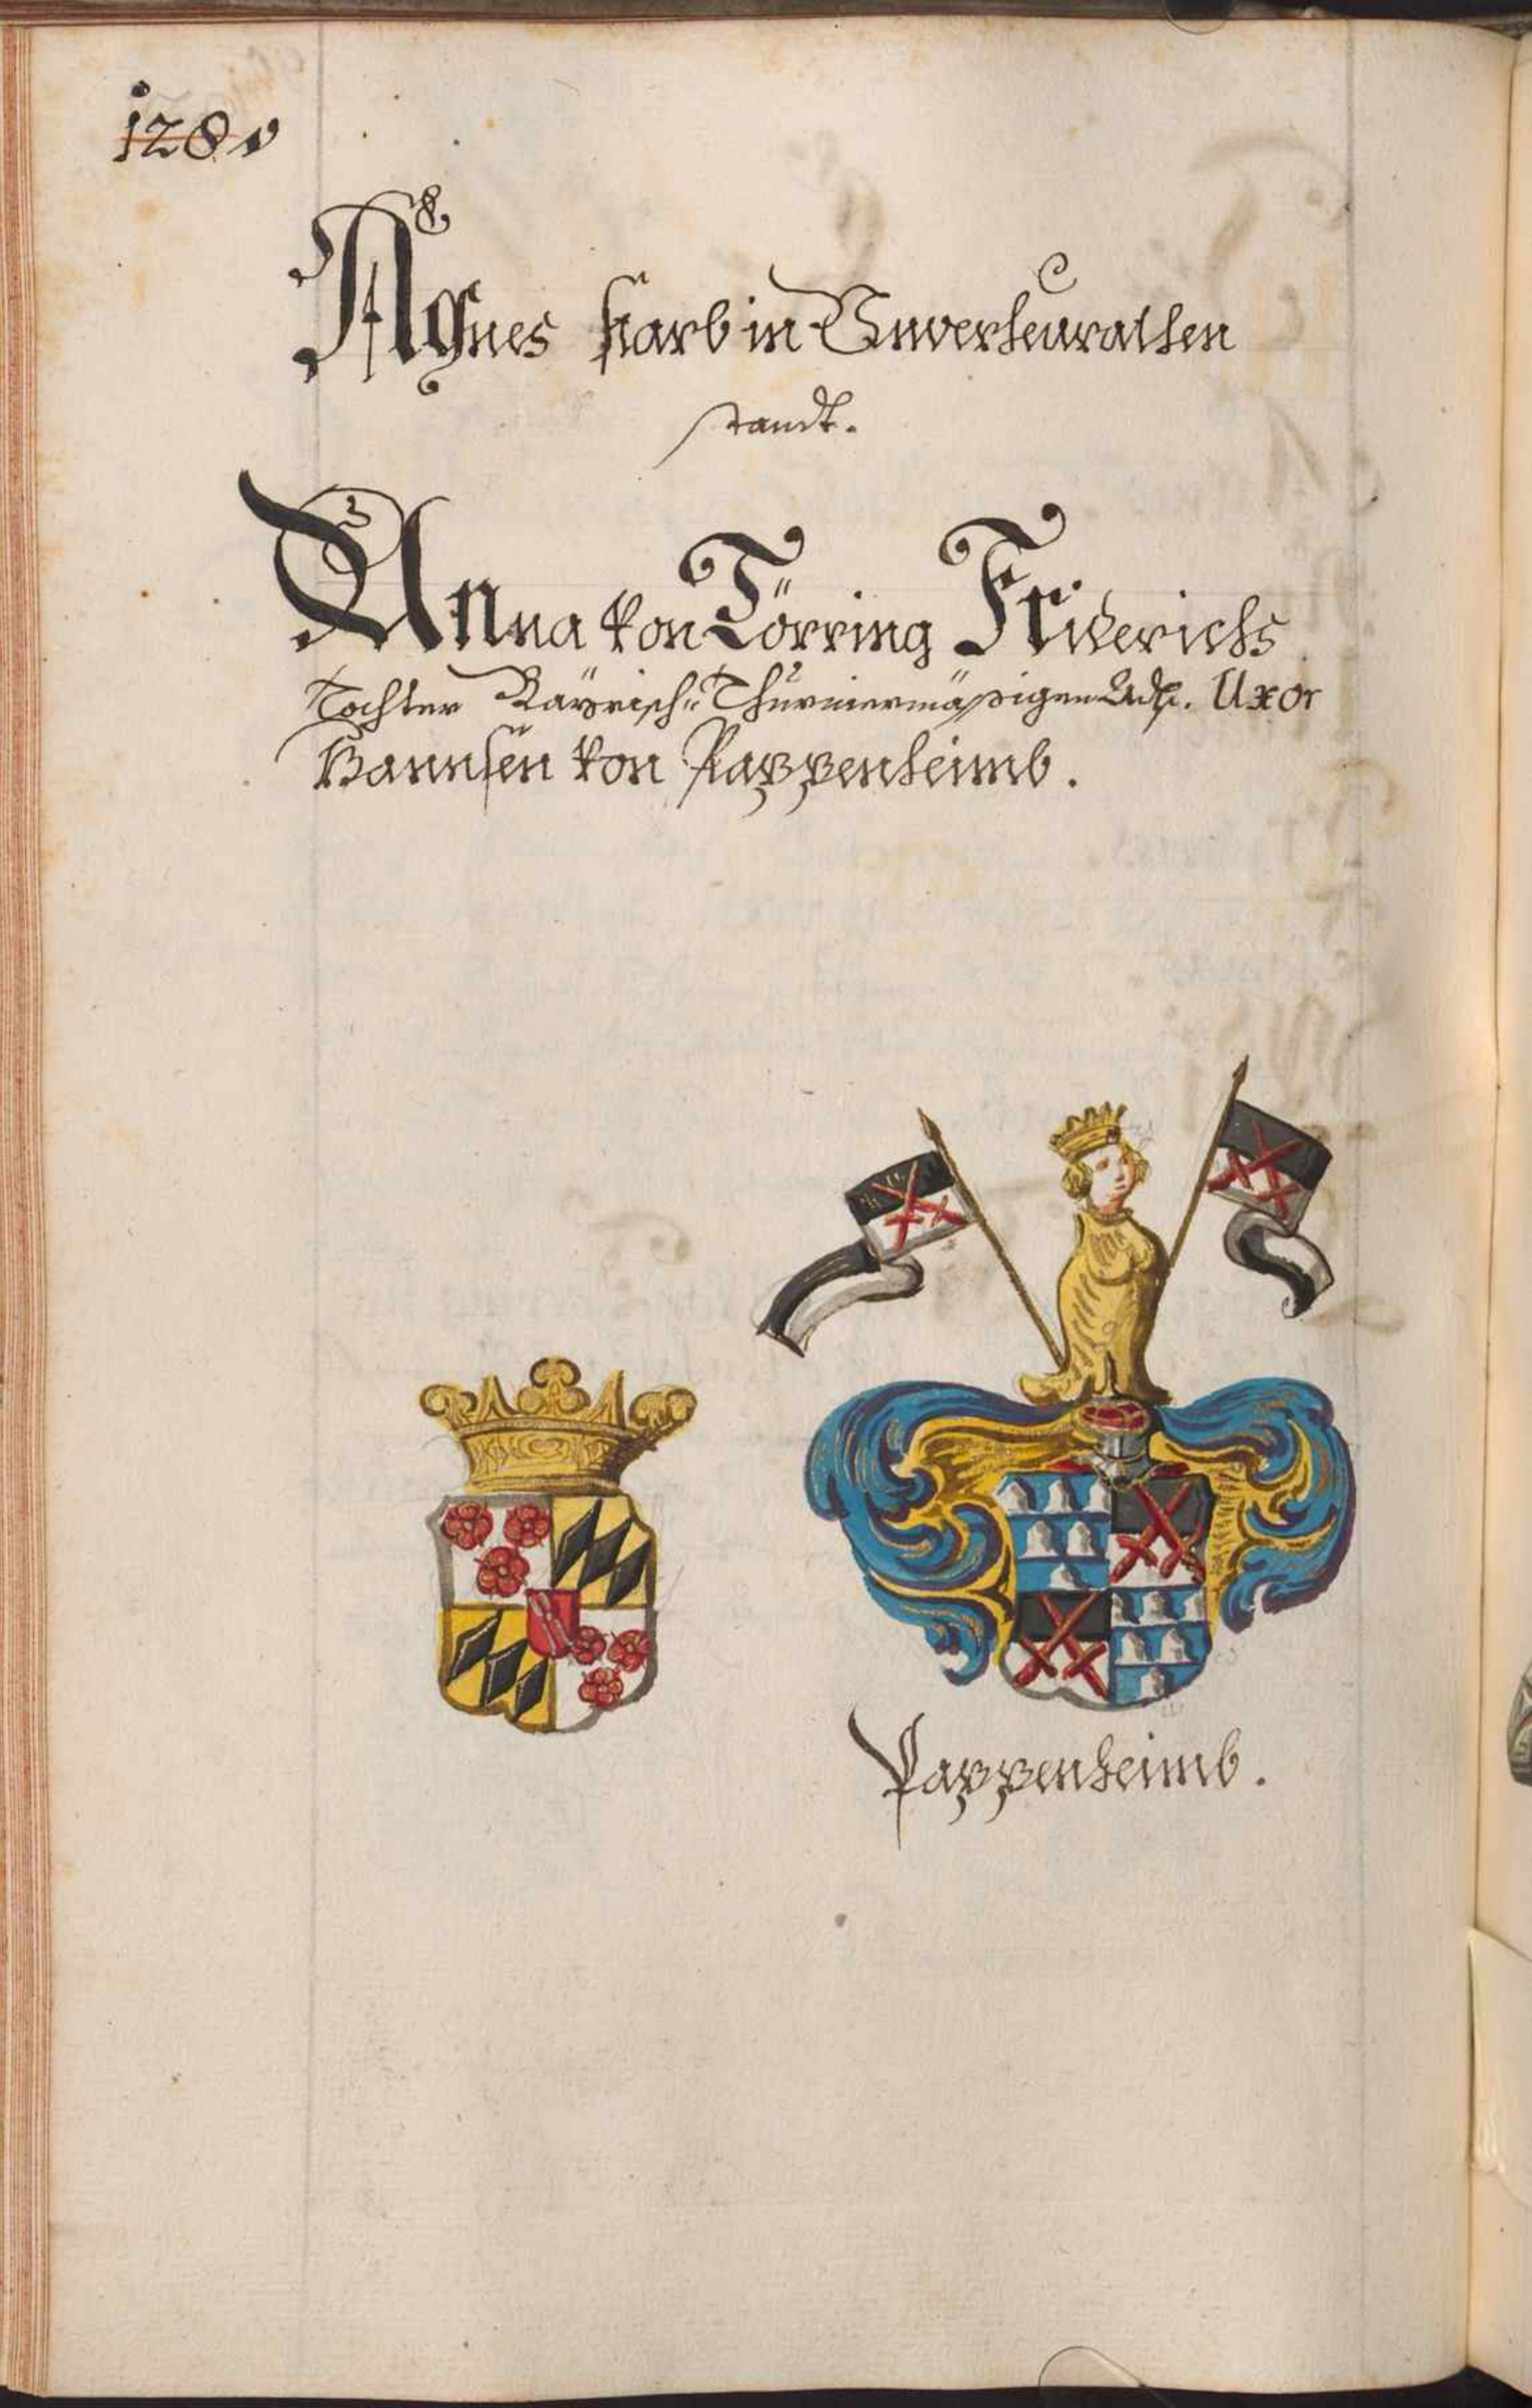 128.
Agnes starb in Unverheurathen
standt.
Anna von Törring Friderichs
Tochter Bayrisch: Thurniermäßigen Adls. Uxor
Hannsen von Pappenheimb.
Pappenheimb.